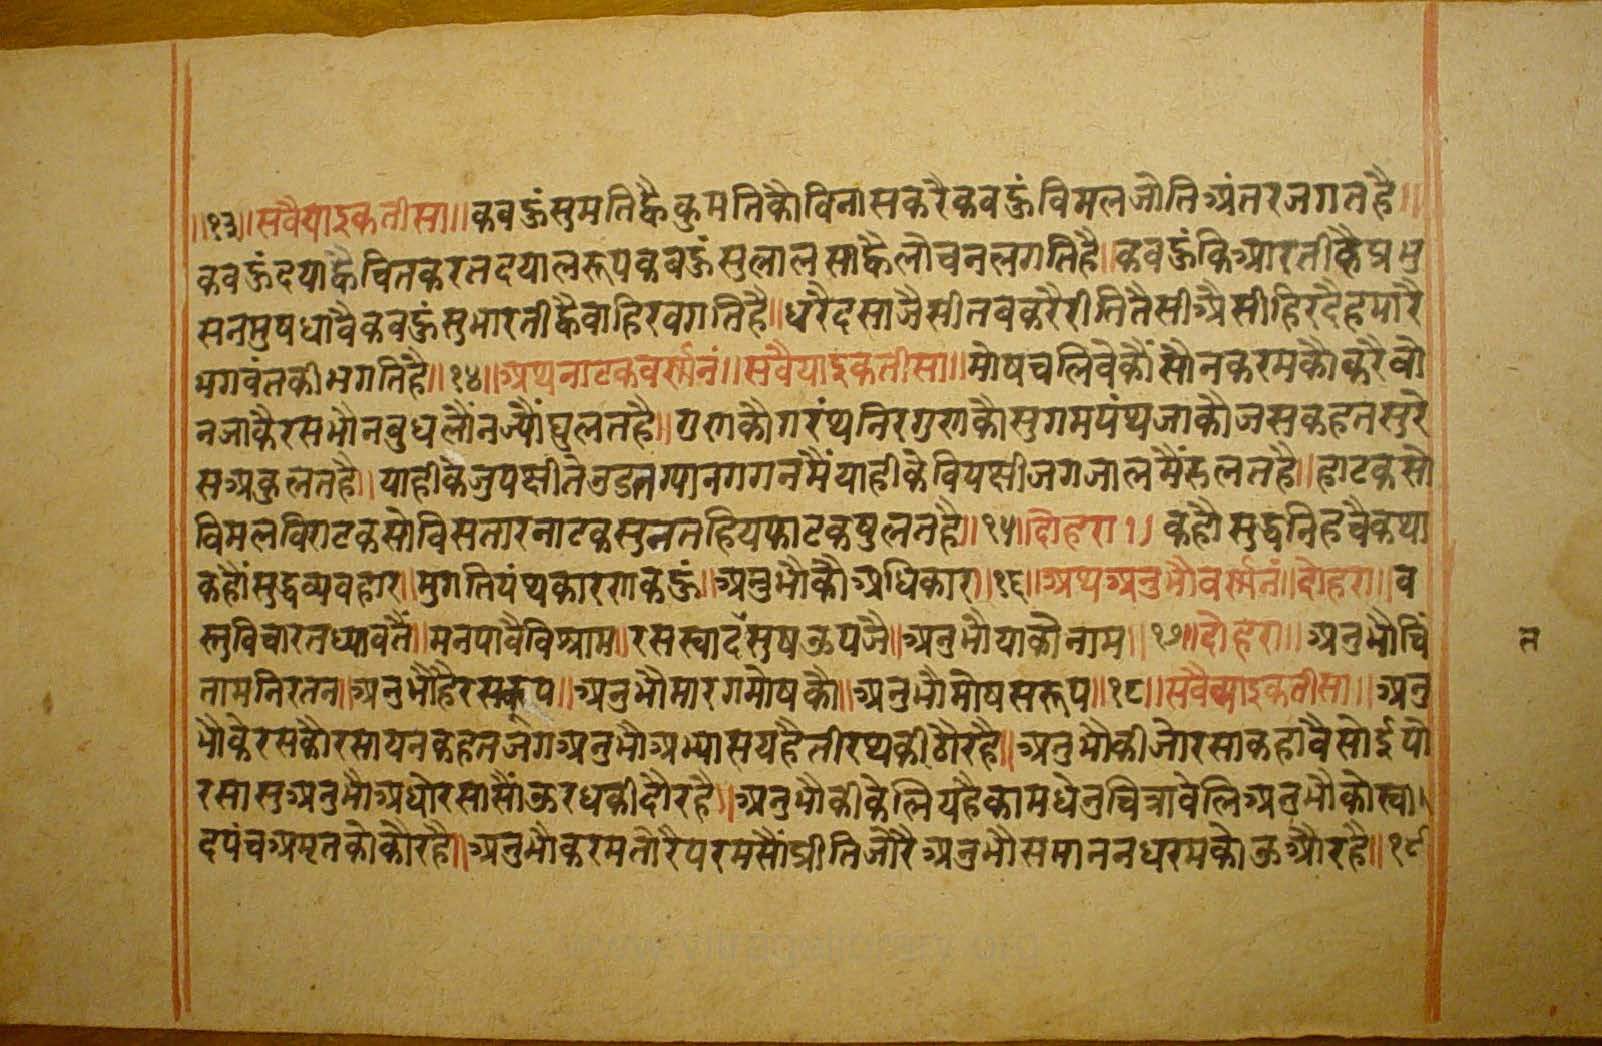 ॥१३॥सवैयाइकतीसा॥कबहूंसुमतिह्वैकुमतिकौविनासकरैकबहूंविमलजोतिअंतरजगतहै॥
कबहूंदयाह्वैचितकरतदयालरूपकबहूंसुलालसाह्वैलोचनलगतिहै॥कबहूंकिआरतीह्वैप्रभु
सनमुषधावैकबहूंसुभारतीह्वैबाहिरबगतिहै॥धरैदसाजैसीतबकरैरीतितैसीअैसीहिरदैहमारै
भगवंतकीभगतिहै॥१४॥अथनाटकवर्ननं॥सवैयाइकतीसा॥मोषचलिवेकौंसौनकरमकौकरैबौ
नजाकैरसभौनबुधलौंनज्यौंघुलतहै॥गुणकौगरंथनिरगुणकौसुगमपंथजाकौजसकहतसुरे
सअकुलतहै॥याहीकेजुपक्षीतेउडतग्यानगगनमैंयाहीकेविपक्षीजगजालमैंरुलतहै॥हाटकसो
विमलविराटकसोविसतारनाटकसुनतहियफाटकषुलतहै॥१५॥दोहरा१॥कहौसुद्धनिहचैकथा
कहौंसुद्धव्यवहार॥मुगतिपंथकारणकहूं॥अनुभौकौअधिकार॥१६॥अथअनुभौवर्ननं॥दोहरा॥व
स्तुविचारतध्यावतैं॥मनपावैविश्राम॥रसस्वादंसुषऊपजै॥अनुभौयाकौनाम॥१७॥दोहरा॥अनुभौचिं
तामनिरतन॥अनुभौहैरसकूप॥अनुभौमारगमोषकौ॥अनुभौमोषसरूप॥१८॥सवैय्याइकतीसा॥अनु
भौकेरसकौरसायनकहतजगअनुभौअभ्यासयहैतीरथकीठौरहै॥अनुभौकीजोरसाकहावैसोईपो
रसासुअनुभौअधोरसासौंऊरधकीदौरहै॥अनुभौकीकेलियहैकामधेनुचित्रावेलिअनुभौकोस्वा
दपंचअमृतकोकौरहै॥अनुभौकरमतोरैपरमसौंप्रीतिजोरैअनुभौसमाननधरमकोऊऔरहै॥१९
त